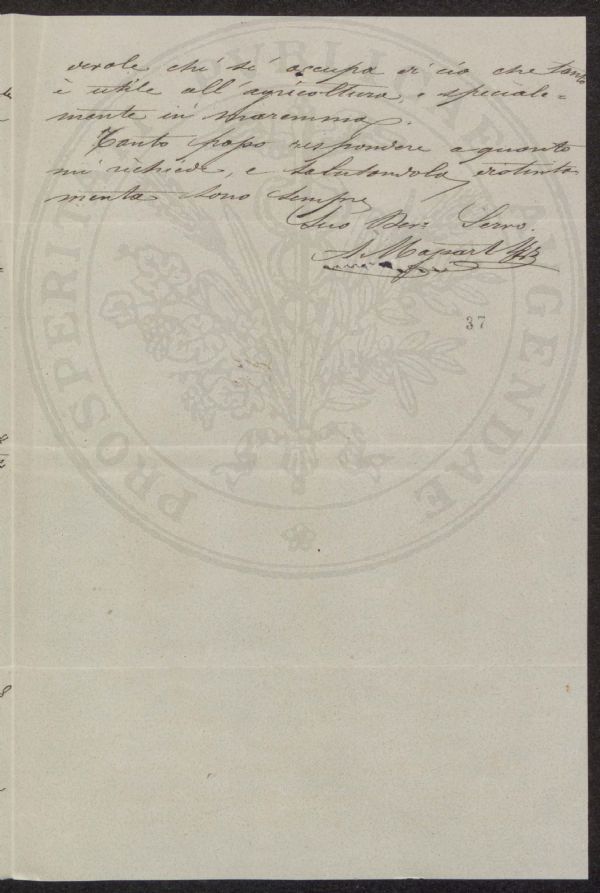 devole chi si occupa di ciò che tanto
è utile all'agricoltura, e speciale=
mente in maremma.
Tanto posso rispondere a quanto
mi richiede, e salutandola distinta
mente sono sempre
Suo Dev: Servo.
A. Mapart
37
PROSPERITATI PUBLICAE AUGENDAE